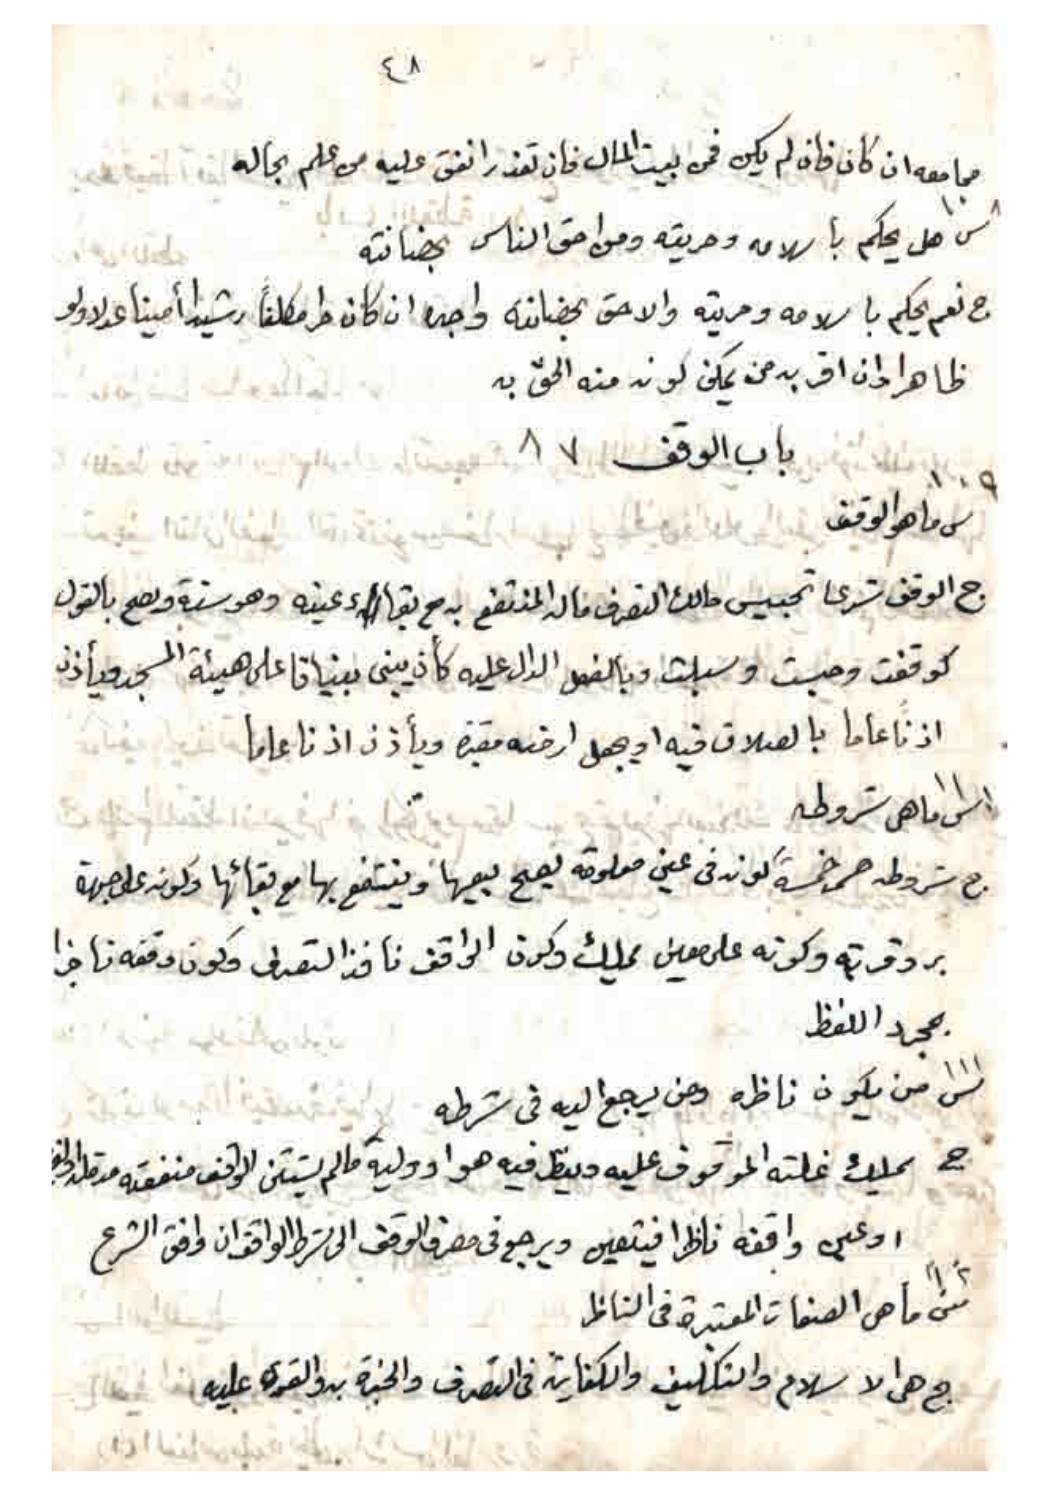 ٤٨
مما معه ان كان فان لم يكن فمن بيت المال فان تعذر انفق عليه من علم بحاله
١٠٨
س هل يحكم باسلامه وحريته ومن احق الناس بحضانته
ج نعم يحكم باسلامه وحريته والاحق بحضانته واجده ان كان حرا مكلفاً رشيدا أمينا عدلا ولو
ظاهرا وان اقر به من يمكن كونه منه الحق به
باب الوقف ٨٧
١٠٩
س ما هو الوقف
ج الوقف شرعا تحبيس مالك التصرف ماله المنتفع به مع بقاء عينه وهو سنة ويصح بالقول
كوقفت وحبست وسبلت وبالفعل الدال عليه كأن يبنى بنيانا على هيئة المسجد ويأذن
اذناً عاما بالصلاة فيه او يجعل ارضه مقبرة ويأذن اذنا عاما
١١٠
س ما هى شروطه
ج شروطه خمسة كونه فى عين معلومة يصح بيعها وينتفع بها مع بقائها وكونه على جهة
بر وقربة وكونه على معين يملك وكون الواقف نافذ التصرف وكون وقفه ناجزا
بمجرد اللفظ
١١١
س من يكون ناظره ومن يرجع اليه فى شرطه
ج يملك غلته الموقوف عليه وينظر فيه هو او وليه مالم يستثن الواقف منفعته مدة
او عين واقفه ناظرا فيتعين ويرجع فى مصرف الوقف الى شرط الواقف ان وافق الشرع
١١٢
س ما هى الصفات المعتبرة فى الناظر
ج هى الاسلام والتكليف والكفاية فى التصرف والخبرة به والقوة عليه